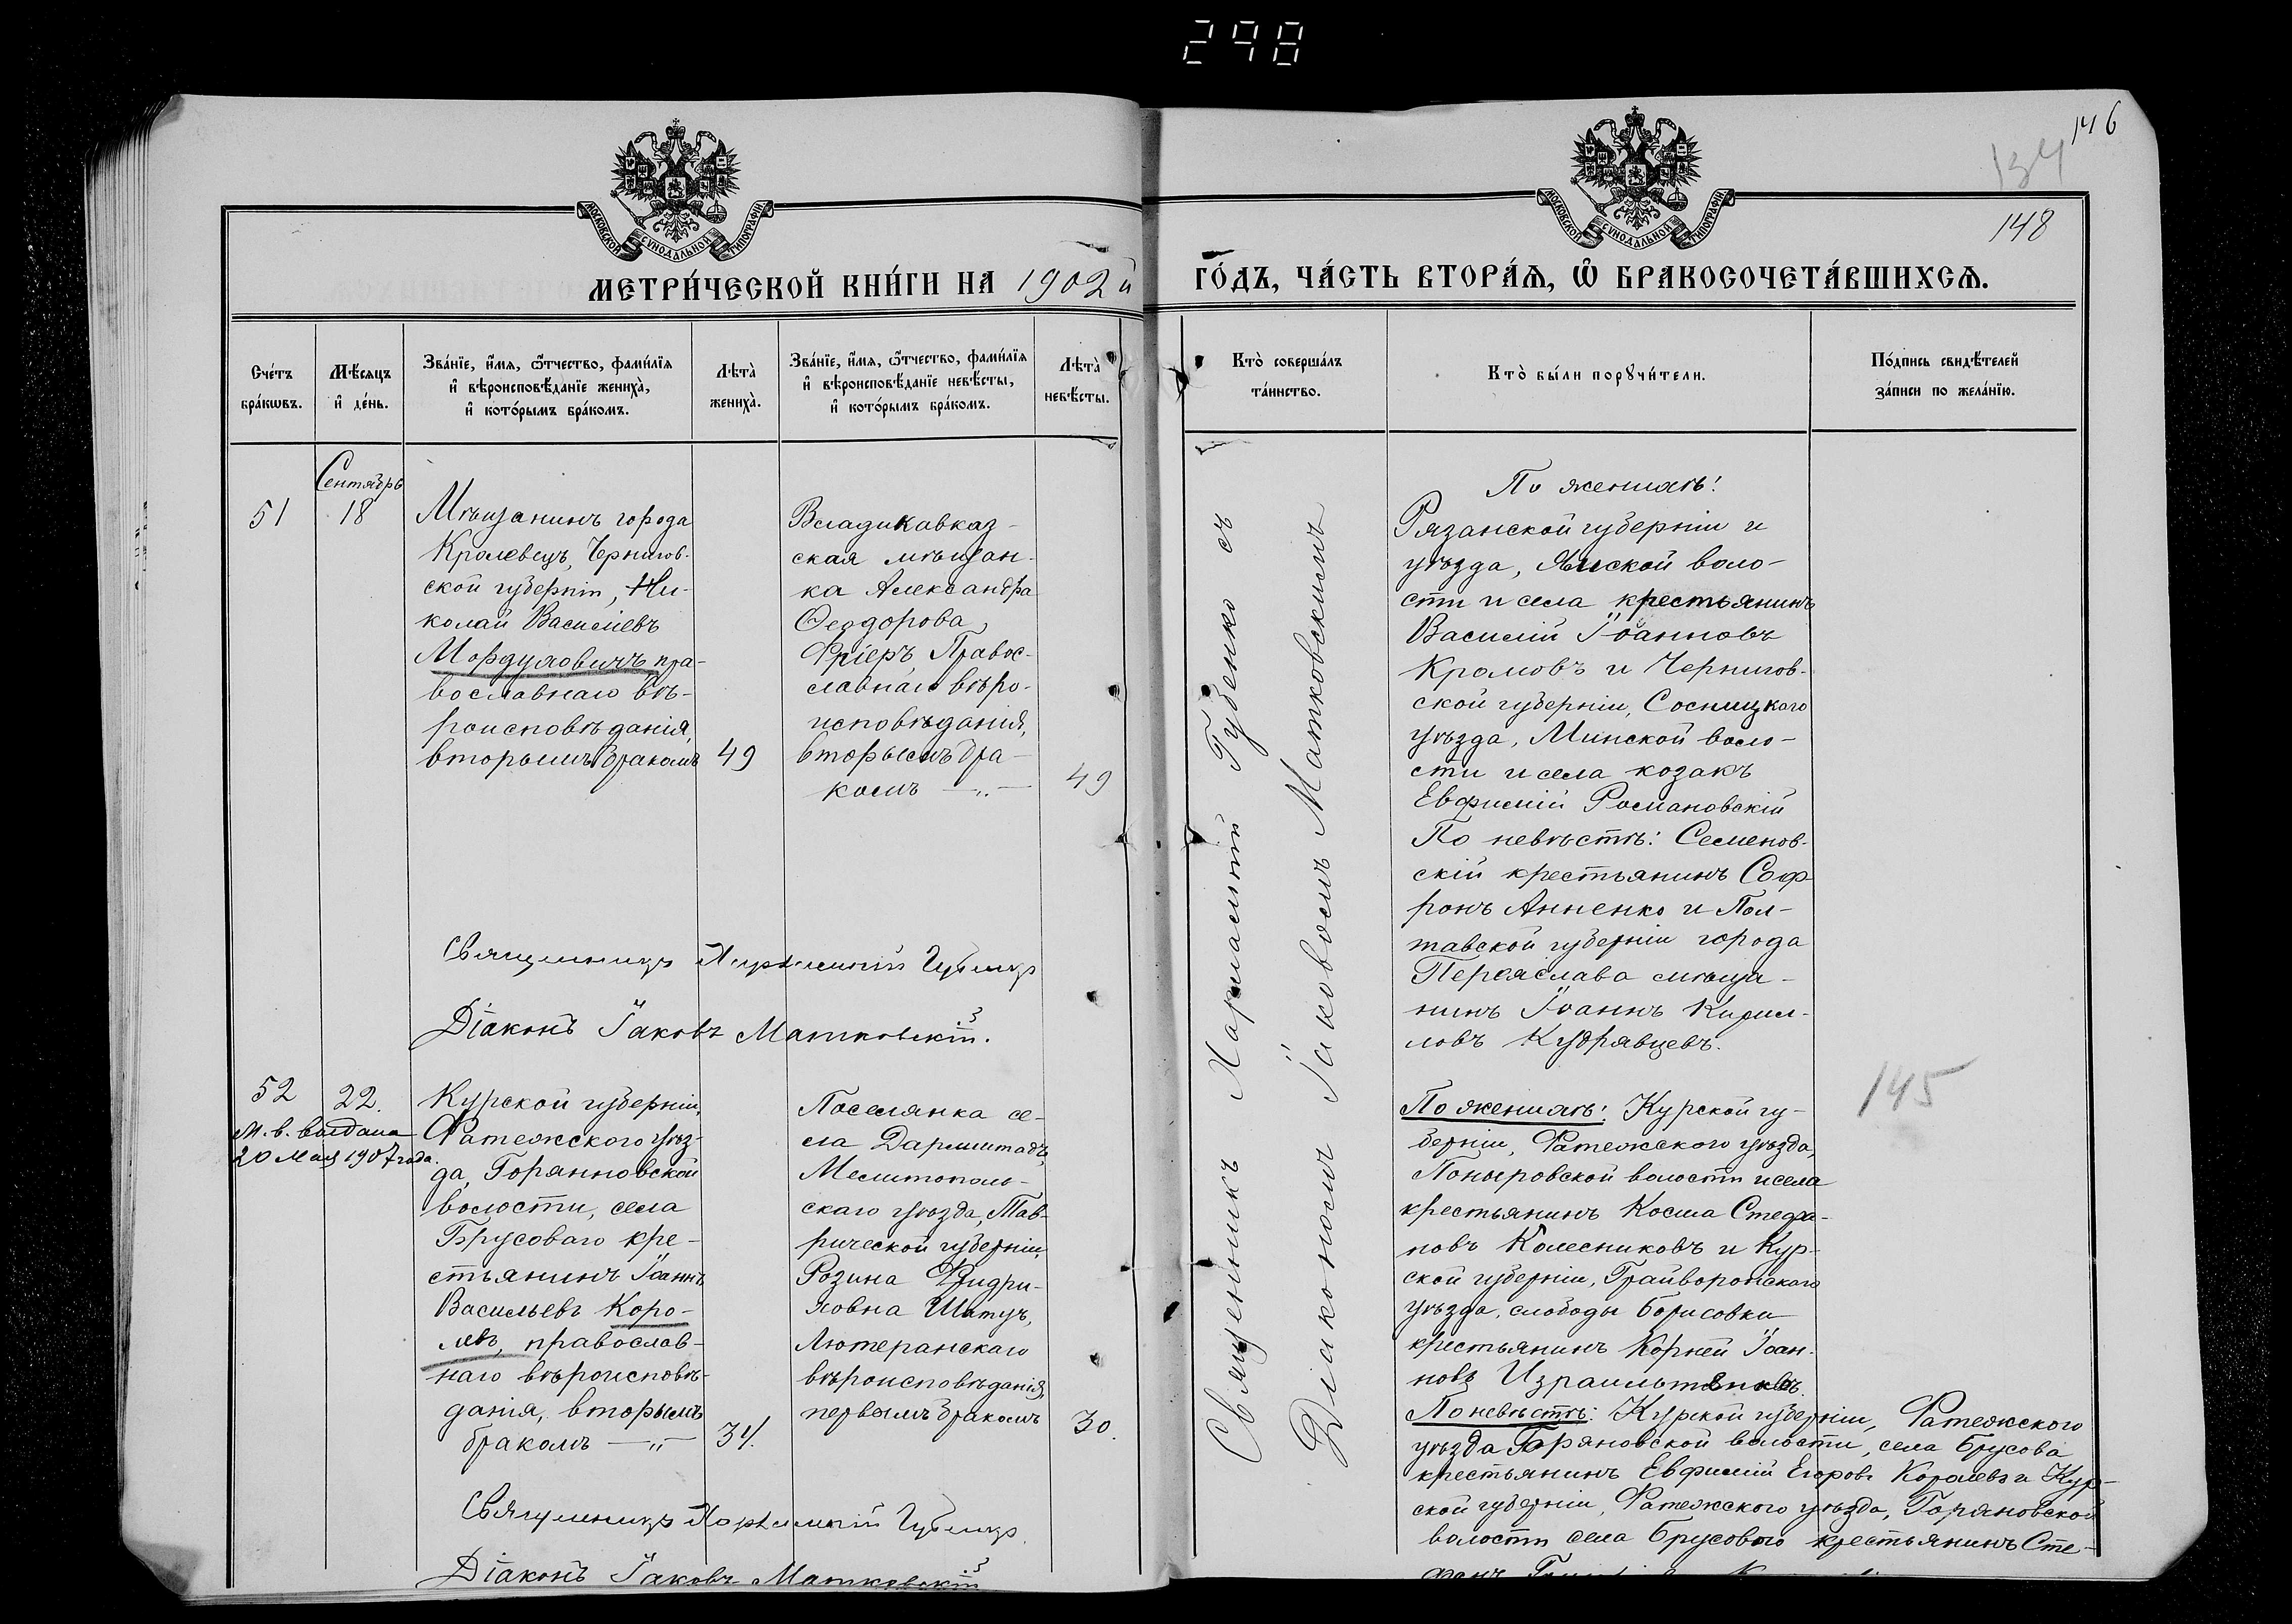 298
146
134
148
МОСКОВСКОЙ СѴНОДАЛЬНОЙ ТИПОГРАФІИ
МОСКОВСКОЙ СѴНОДАЛЬНОЙ ТИПОГРАФІИ
МЕТРИ́ЧЕСКОЙ КНИ́ГИ НА 1902й
ГО́ДЪ, ЧА́СТЬ ВТОРА́Ѧ, Ѽ БРАКОСОЧЕТА́ВШИХСѦ.
Сче́тъ
бра́кѡвъ.
Мѣ́сяцъ
и҆ де́нь.
Зва́нїе, и҆́мя, ѻ҆́тчество, фами́лїя
и҆ вѣроисповѣ́данїе жениха̀,
и҆ кото́рымъ бра́комъ.
Лѣта̀
жениха̀.
Зва́нїе, и҆́мя, ѻ҆́тчество, фами́лїя
и҆ вѣроисповѣ́данїе невѣ́сты,
и҆ кото́рымъ бра́комъ.
Лѣта̀
невѣ́сты.
Кто̀ соверша́лъ
та́инство.
Кто̀ бы́ли порꙋчи́тели.
По́дпись свидѣ́телей
за́писи по жела́нїю.
51
Сентябрь
18
Мѣщанинъ города
Кролевецъ, Чернигов-
ской губерніи, Ни-
колай Василіевъ
Мордуховичъ пра-
вославнаго вѣ-
роисповѣданія,
вторымъ бракомъ
49
Владикавказ-
ская мѣщан-
ка Александра
Ѳеодорова
Фріеръ, Правос-
лавнаго вѣро-
исповѣданія,
вторымъ бра-
комъ —„—
49
Священникъ Харлампій Губенко съ
Діакономъ Іаковомъ Матковскимъ
По женихѣ:
Рязанской губерніи и
уѣзда, Ямской воло-
сти и села крестьянинъ
Василій Іоанновъ
Кромовъ и Чернигов-
ской губерніи, Сосницкаго
уѣзда, Минской воло-
сти и села козакъ
Евфимій Романовскій
По невѣстѣ: Семенов-
скій крестьянинъ Соф-
ронъ Анненко и Пол-
тавской губерніи города
Переяслава мѣща-
нинъ Іоаннъ Кирил-
ловъ Кудрявцевъ.
Священникъ Харлампій Губенко
Діаконъ Іаковъ Матковскій.
52
22.
М. в. выдана
20 Мая 1907 года.
Курской губерніи,
Фатежскаго уѣз-
да, Горянновской
волости, села
Брусоваго кре-
стьянинъ Іоаннъ
Васильевъ Коро-
левъ, православ-
наго вѣроисповѣ-
данія, вторымъ
бракомъ —„—
34.
Поселянка се-
ла Дармштадъ,
Мелитополь-
скаго уѣзда, Тав-
рической губерніи,
Розина Фридри-
ховна Штуч,
Лютеранскаго
вѣроисповѣданія,
первымъ бракомъ
30.
145
По женихѣ: Курской гу-
берніи, Фатежскаго уѣзда,
Поныровской волости и села
крестьянинъ Косма Стефа-
новъ Колесниковъ и Кур-
ской губерніи, Грайворонскаго
уѣзда, слободы Борисовки
крестьянинъ Корней Іоан-
новъ Израильтенковъ.
По невѣстѣ: Курской губерніи, Фатежскаго
уѣзда Горяновской волости, села Брусова
крестьянинъ Евфимій Егоровъ Королевъ и Кур-
ской губерніи, Фатежскаго уѣзда, Горяновской
волости села Брусового крестьянинъ Сте-
фанъ
Священникъ Харлампій Губенко.
Діаконъ Іаковъ Матковскій